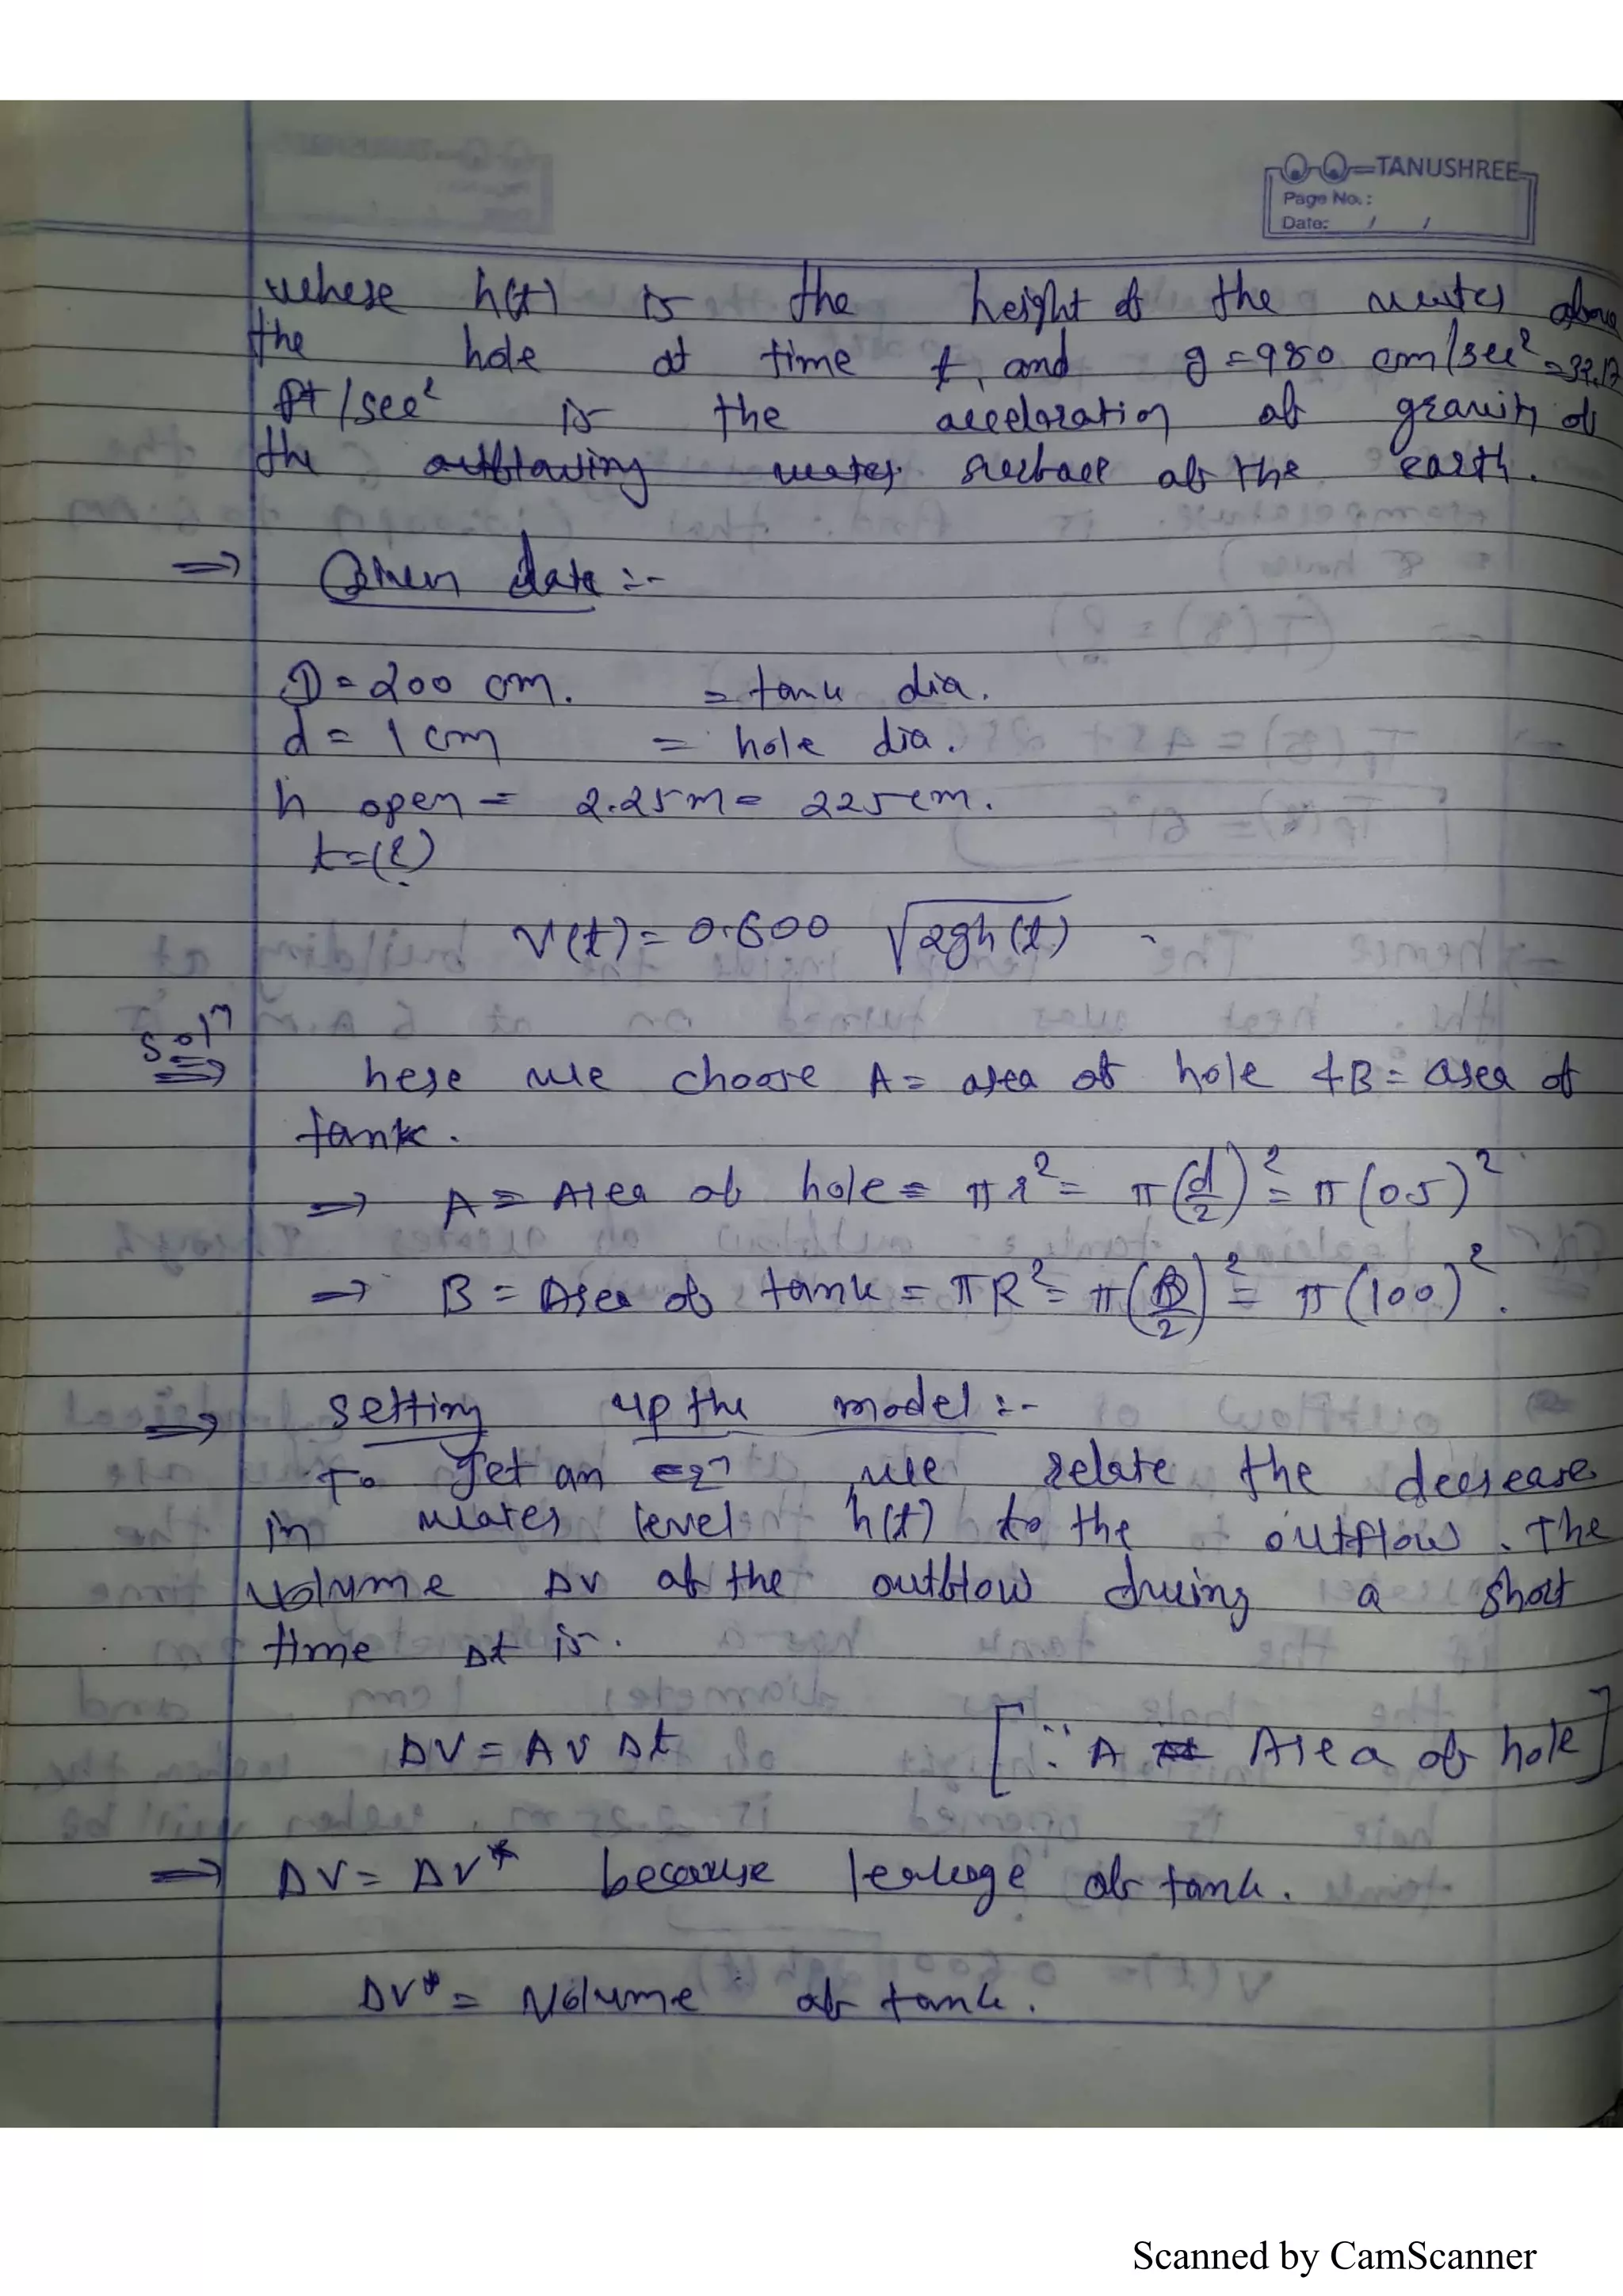 TANUSHREE
Page No.:
Date: / /
where h(t) is the height of the water above
the hole at time t, and g = 980 cm/sec² = 32.17
ft/sec² is the acceleration of gravity of
the outflowing water surface of the earth.
⇒ Given data :-
D = 200 cm. = tank dia.
d = 1 cm = hole dia.
h open = 2.25m = 225cm.
t = (?)
V(t) = 0.600 √2gh(t)
Solⁿ
⇒ here we choose A = area of hole & B = area of
tank.
⇒ A = Area of hole = πr² = π(d/2)² = π(0.5)²
⇒ B = Area of tank = πR² = π(D/2)² = π(100)².
⇒ setting up the model :-
To get an eqⁿ we relate the decrease
in water level h(t) to the outflow. The
volume ΔV of the outflow during a short
time Δt is.
ΔV = A v Δt [∵ A = Area of hole]
⇒ ΔV = ΔV* because leakage of tank.
ΔV* = Volume of tank.
Scanned by CamScanner